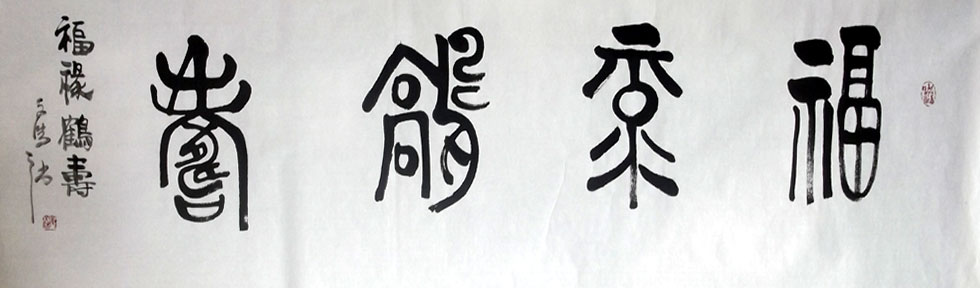 福祿鶴壽
福祿鶴壽